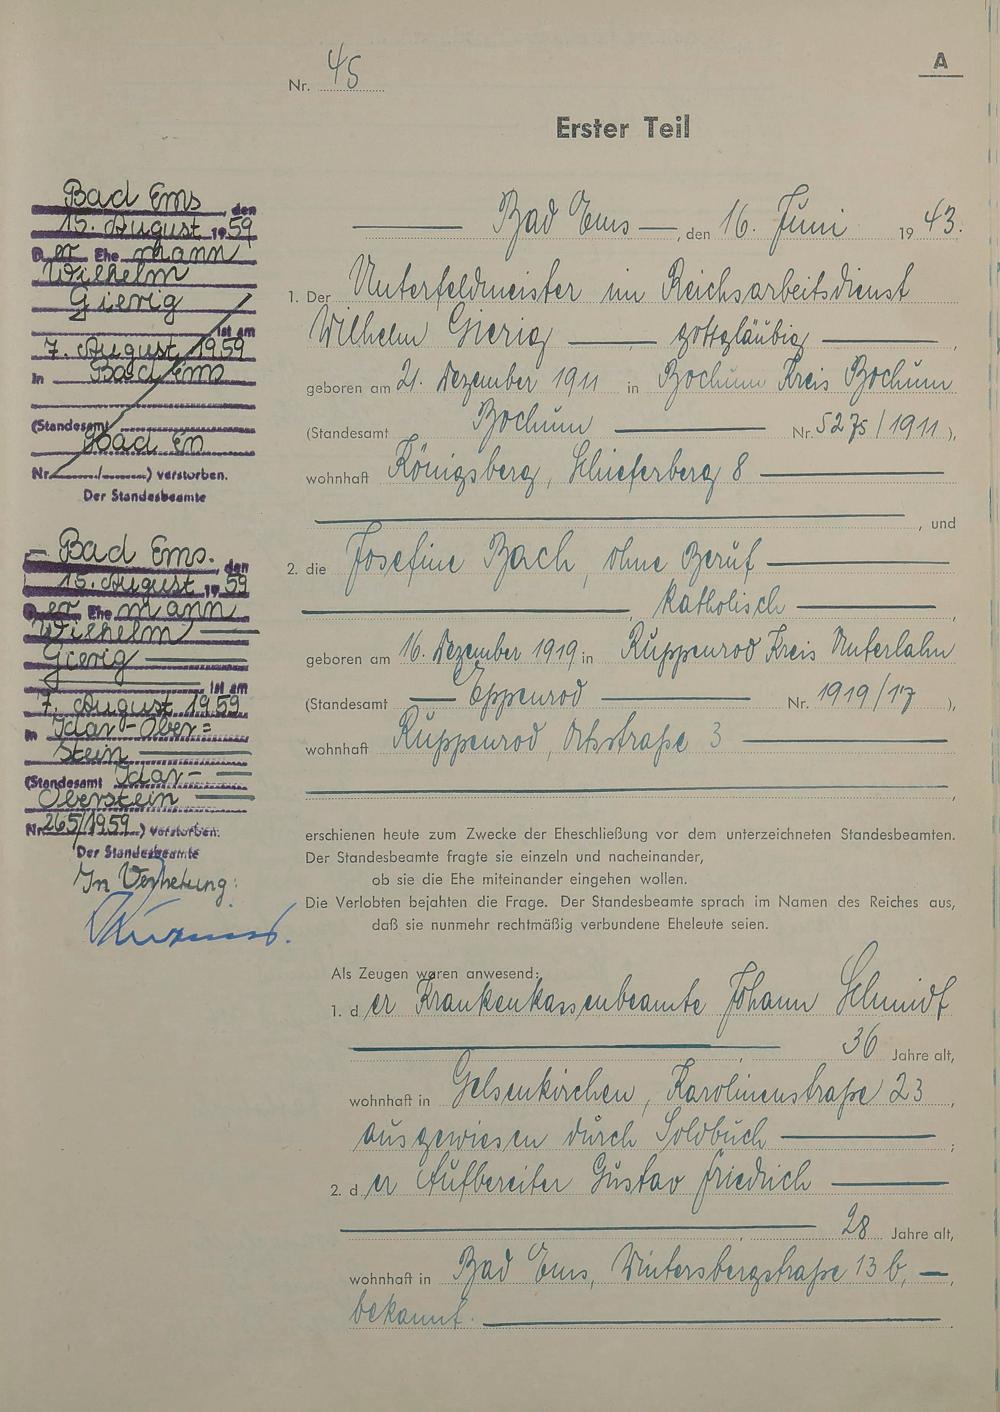 A
Nr. 45
Erster Teil
Bad Ems, den 16. Juni 1943.
1. Der Unterfeldmeister im Reichsarbeitsdienst
Wilhelm Gierig gottgläubig,
geboren am 21. Dezember 1911 in Bochum Kreis Bochum
(Standesamt Bochum Nr. 5275/1911),
wohnhaft Königsberg, Schieferberg 8
, und
2. die Josefine Bach, ohne Beruf
, katholisch,
geboren am 16. Dezember 1919 in Ruppenrod Kreis Unterlahn
(Standesamt Eppenrod Nr. 1919/17),
wohnhaft Ruppenrod, Ortsstraße 3
,
erschienen heute zum Zwecke der Eheschließung vor dem unterzeichneten Standesbeamten.
Der Standesbeamte fragte sie einzeln und nacheinander,
ob sie die Ehe miteinander eingehen wollen.
Die Verlobten bejahten die Frage. Der Standesbeamte sprach im Namen des Reiches aus,
daß sie nunmehr rechtmäßig verbundene Eheleute seien.
Als Zeugen waren anwesend:
1. der Krankenkassenbeamte Johann Schmidt
, 36 Jahre alt,
wohnhaft in Gelsenkirchen, Karolinenstraße 23,
ausgewiesen durch Soldbuch;
2. der Aufbereiter Gustav Friedrich
, 28 Jahre alt,
wohnhaft in Bad Ems, Wintersbergstraße 13 b, —,
bekannt.
Bad Ems, den
15. August 1959
Der Ehemann
Wilhelm
Gierig
ist am
7. August 1959
in Bad Ems
(Standesamt
Bad Em
Nr. /) verstorben.
Der Standesbeamte
Bad Ems. den
15. August 1959
Der Ehemann
Wilhelm
Gierig
ist am
7. August 1959
in Idar-Ober=
Stein
(Standesamt Idar-
Oberstein
Nr. 265/1959) verstorben.
Der Standesbeamte
In Vertretung: